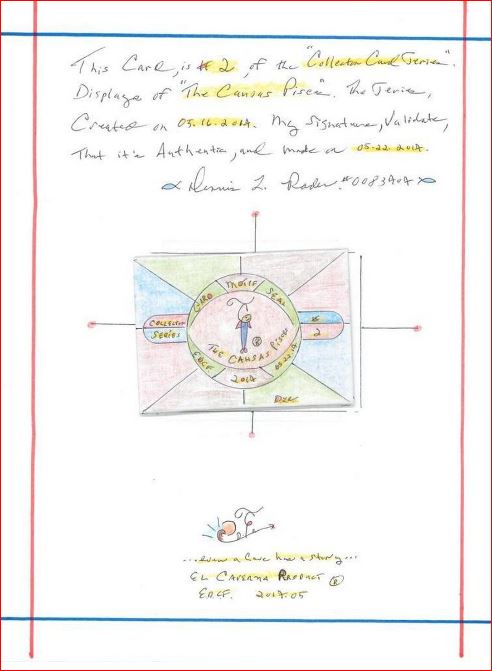 This Card, is # 2, of the "Collector Card Series".
Displays of "The Cansas Pisce". The Series,
Created on 05.16.2017. My Signature, Validate,
That it's Authentic, and made on 05.22.2017.
Dennis L. Rader. #0083707
THOTIF
GURO
SEAL
COLLECTOR
SERIES
#
2
THE CANSAS Pisces ®
EDCF
2017
05.22.17
DLR
...even a Care has a story...
EL PRODUCT ®
EDCF. 2017.05